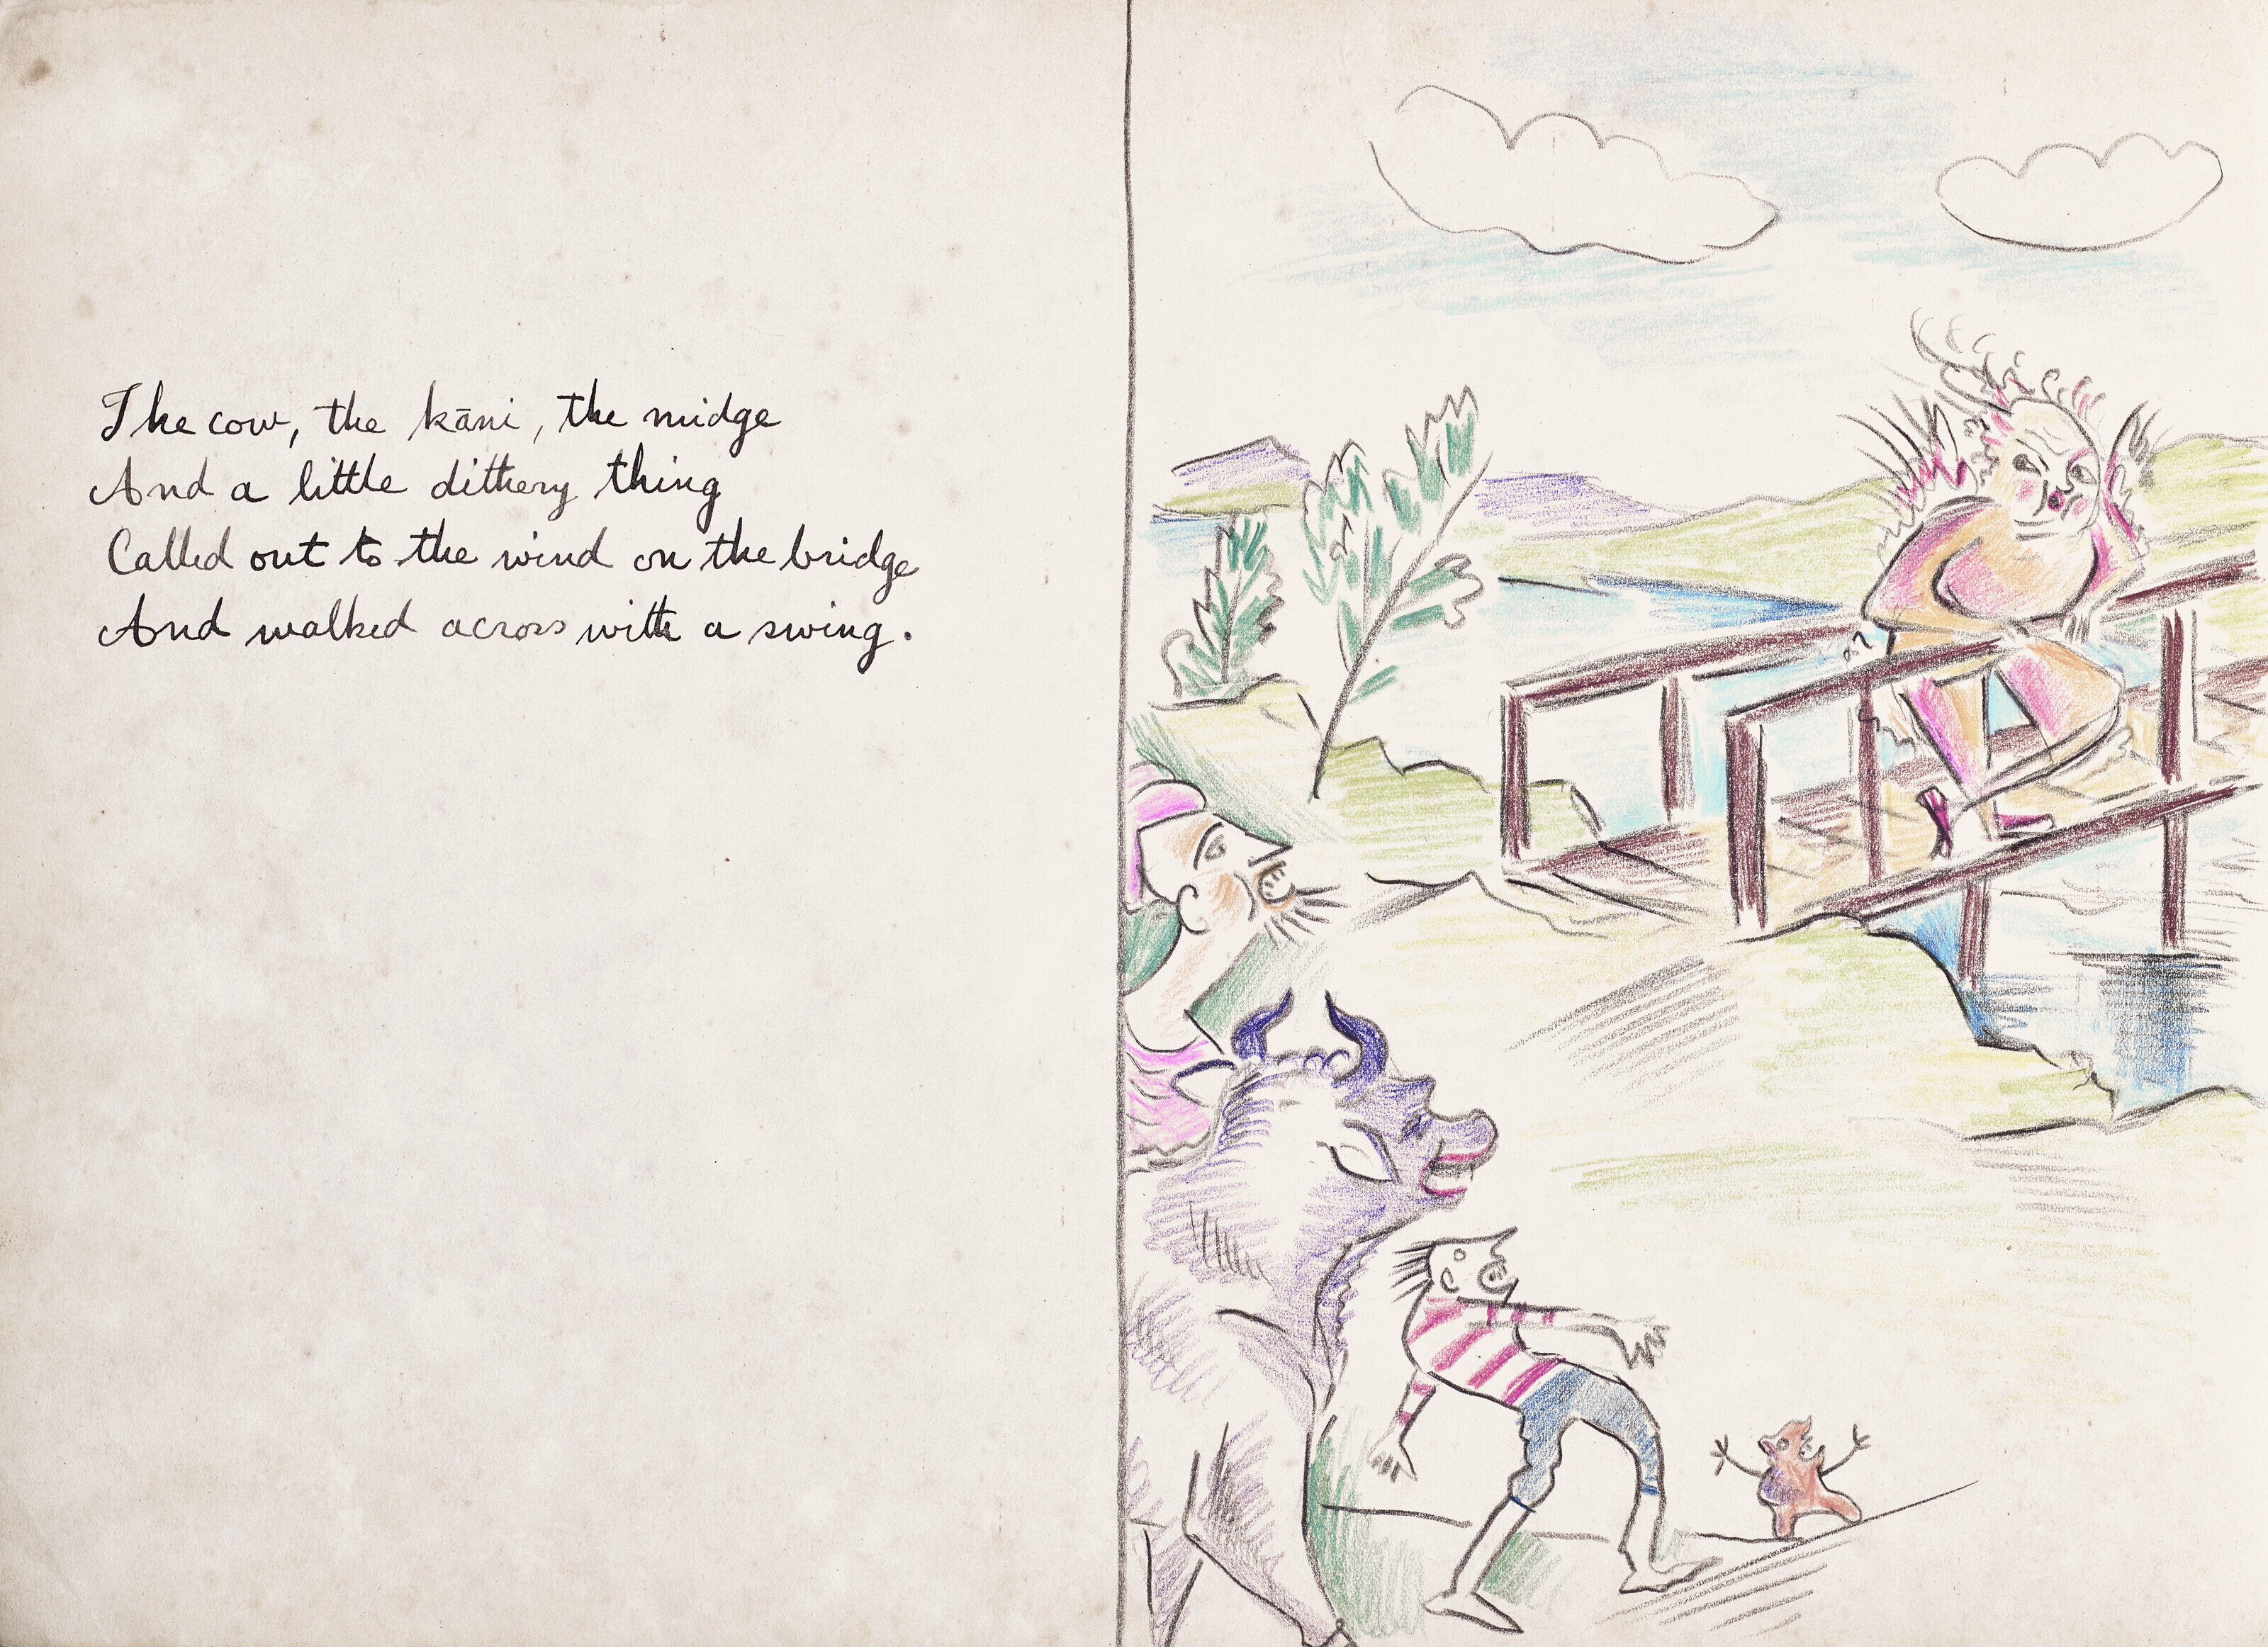 The cow, the kāni, the midge
And a little dithery thing
Called out to the wind on the bridge
And walked across with a swing.